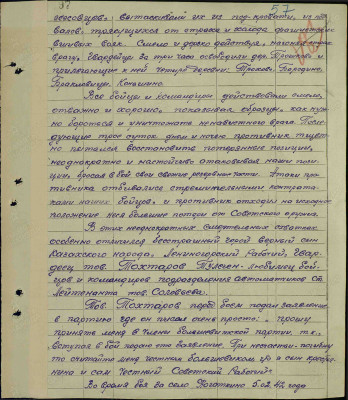 57
гвесовцев. вытаскивали их из под кровати, из по
валов, трясущихся от страха и холода фашистских
вшивых вояк. Смело и дерзко действуя, нанося удары
врагу, гвардейцы за три часа освободили дер. Трохово и
прилегающие к ней четыре деревни: Трохово, Бородино,
Бракловицы, Коншино.
Все бойцы и командиры действовали смело,
отважно и хорошо, показывая образцы, как нужно
бороться и уничтожать ненавистного врага. После
дующие трое суток днем и ночью противник тщет
но пытался восстановить потерянные позиции,
неоднократно и настойчиво атаковывая наши пози
ции, бросая в бой свои свежие резервные части. Атаки про
тивника отбивались стремительными контрата
ками наших бойцов, и противник отходил на исходное
положение неся большие потери от Советского оружия.
В этих неоднократных смертельных схватках
особенно отличился бесстрашный герой верный сын
Казахского народа, Лениногорский Рабочий, Гвар
деец тов. Тохтаров Тулеген - любимец бой
цов и командиров подразделения автоматчиков Ст.
Лейтенанта тов. Соловьева.
Тов. Тохтаров перед боем подал заявление
в партию где он писал очень просто: „прошу
принять меня в члены большевистской партии, т.к.
вступая в бой подаю это заявление. При несчастьи-погибну
то считайте меня честным большевиком
и сам Честный Советский Рабочий".
Во время боя за село Боготкино 5.02.42 года